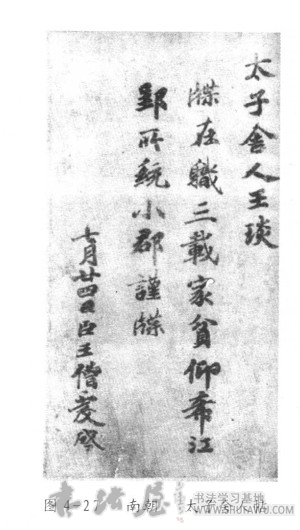 太子舍人王琰
牒在職三載家貧仰希江
郢所統小郡謹牒
七月廿四日臣王僧虔啓
图4-27 南朝 太子舍人帖
书法屋
书法学习基地
www.SHUFAWU.com